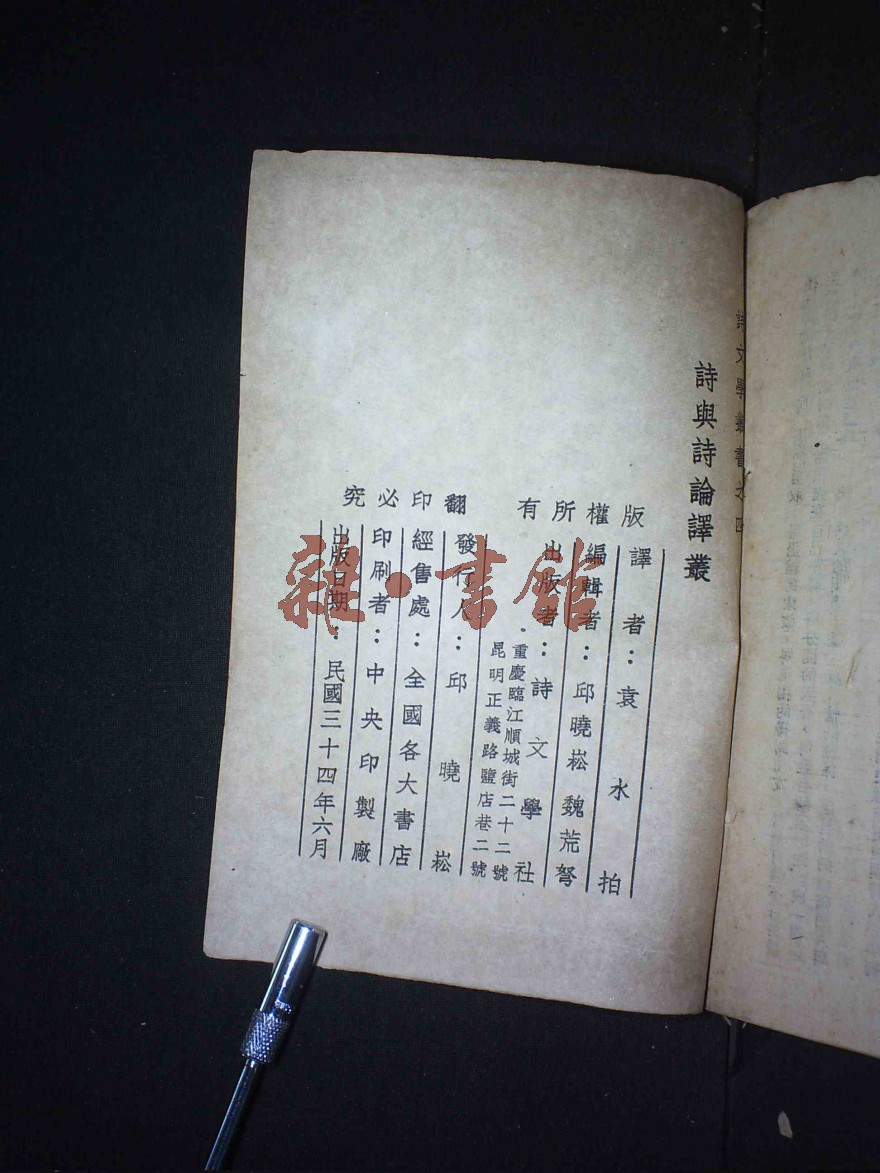 詩文學叢書之四
詩與詩論譯叢
版權所有
翻印必究
譯者：袁水拍
編輯者：邱曉崧 魏荒弩
出版者：詩文學社
重慶臨江順城街二十二號
昆明正義路鹽店巷二號
發行人：邱曉崧
經售處：全國各大書店
印刷者：中央印製廠
出版日期：民國三十四年六月
雜·書館